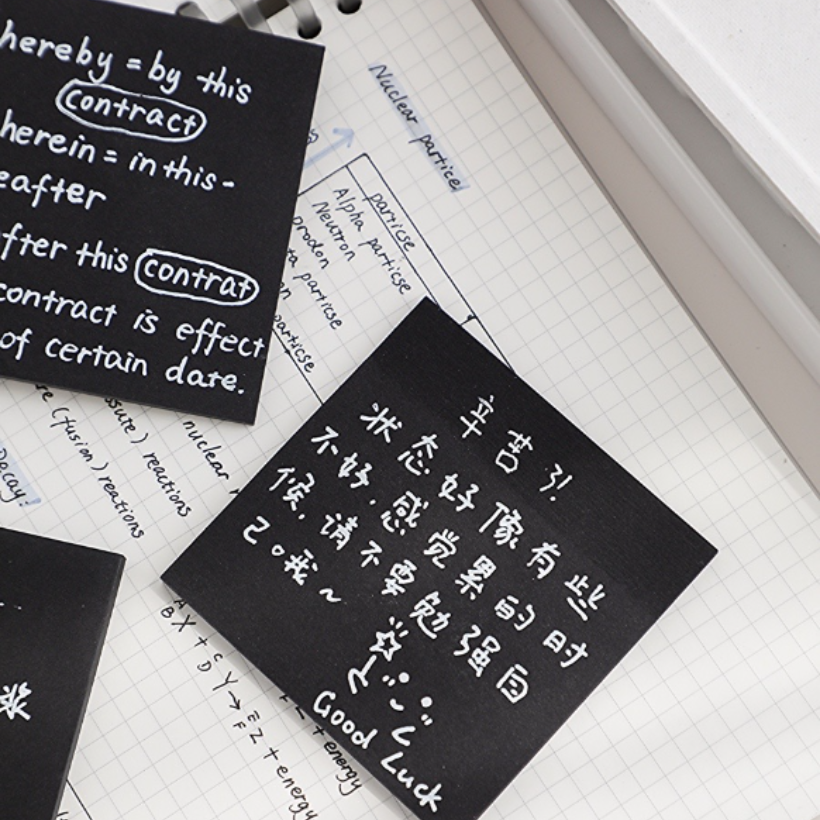 hereby = by this
contract
herein = in this -
eafter
fter this contrat
contract is effect
of certain date.
Nuclear particel
particse
Alpha particse
Neutron
prodon
ta particse
on
particse
nuclear
ssure) reactions
re (fusion) reations
Decay:
辛苦了!
状态好像有些
不好,感觉累的时
候,请不要勉强自
己。哦~
Good Luck
A
B X + C
D Y → E
F Z + energy
+ energy
浆